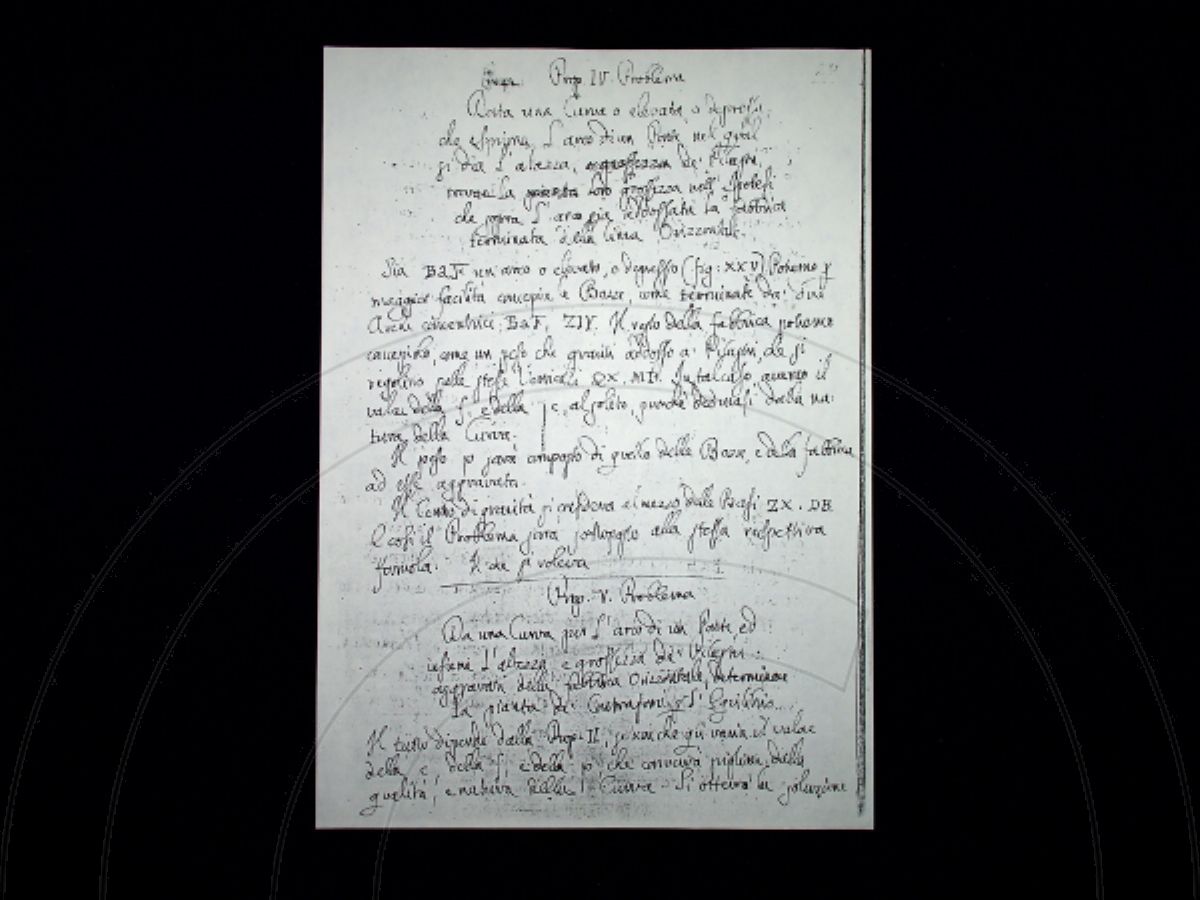 Prop. IV. Problema
Data una Curva o elevata, o depressa,
che esprima l'arco di un Ponte nel qual
si dia l'altezza, de' Pilastri,
trovare la loro grossezza nell'Ipotesi
che sopra l'arco sia addossata la fabbrica
terminata dalla linea Orizzontale.
Sia BaF un arco o elevato, o depresso (fig: XXV) Poniamo p
maggior facilità le Base, come terminate da' due
Archi concentrici BaF, ZIV. Il resto della fabbrica poniamo
come un peso che graviti addosso a' Pilastri, che si
nelle stesse QX. MD. In tal caso, avremo il
valor della f. e della c, al solito, purchè deducasi dalla na-
tura della Curva.
Il peso p sarà composto di quello delle Base, e della fabbrica
ad esse aggravata.
Il Centro di gravità si nel mezzo delle Basi ZX. DB
E così il Problema sarà sottoposto alla stessa rispettiva
formola. Il che si voleva
Prop. V. Problema
Da una Curva per l'arco di un Ponte, ed
insieme l'altezza e grossezza de' Pilastri
aggravati dalla fabbrica Orizzontale, determinare
la pianta de' Contraforti p l'Equilibrio.
Il tutto dipende dalla Prop. II, se non che qui varia il valore
della c della f, e della p che converrà pigliare dalla
qualità, e natura della Curva. Si otterrà la soluzione